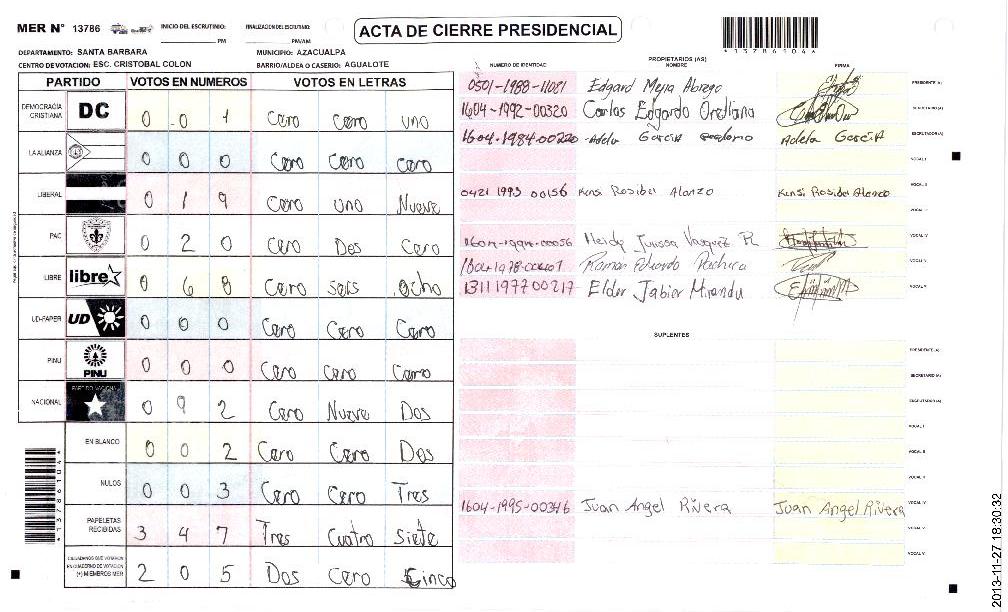 MER N° 13786
INICIO DEL ESCRUTINIO: PM
FINALIZACION DEL ESCRUTINIO: PM/AM
ACTA DE CIERRE PRESIDENCIAL
*13786104*
DEPARTAMENTO: SANTA BARBARA
MUNICIPIO: AZACUALPA
CENTRO DE VOTACION: ESC. CRISTOBAL COLON
BARRIO/ALDEA O CASERIO: AGUALOTE
PARTIDO VOTOS EN NUMEROS VOTOS EN LETRAS
DEMOCRACIA CRISTIANA DC 0 0 1 Cero Cero uno
LA ALIANZA 0 0 0 Cero Cero Cero
LIBERAL 0 1 9 Cero uno Nueve
PAC 0 2 0 Cero Dos Cero
LIBRE libre 0 6 8 Cero seis ocho
UD-FAPER UD 0 0 0 Cero Cero Cero
PINU PINU 0 0 0 Cero Cero Cero
NACIONAL PARTIDO NACIONAL 0 9 2 Cero Nueve Dos
EN BLANCO 0 0 2 Cero Cero Dos
NULOS 0 0 3 Cero Cero Tres
PAPELETAS RECIBIDAS 3 4 7 Tres Cuatro Siete
CIUDADANOS QUE VOTARON EN CUADERNO DE VOTACION (+) MIEMBROS MER 2 0 5 Dos Cero Cinco
PROPIETARIOS (AS)
NUMERO DE IDENTIDAD NOMBRE FIRMA
0501-1988-11081 Edgard Mejia Abrego PRESIDENTE (A)
1604-1992-00320 Carlos Edgardo Orellana SECRETARIO (A)
1604-1984-00220 Adela Garcia Adela Garcia ESCRUTADOR (A)
VOCAL I
0421 1993 00156 Kensi Rosibel Alonzo Kensi Rosibel Alonzo VOCAL II
VOCAL III
1604-1994-00056 Heidy Vasquez R VOCAL IV
Ramon Eduardo Pacheco VOCAL V
1311 1977 00217 Elder Jabier Miranda VOCAL
SUPLENTES
PRESIDENTE (A)
SECRETARIO (A)
ESCRUTADOR (A)
VOCAL I
VOCAL II
VOCAL III
1604-1995-00346 Juan Angel Rivera Juan Angel Rivera VOCAL IV
VOCAL V
VOCAL VI
2013-11-27 18:30:32